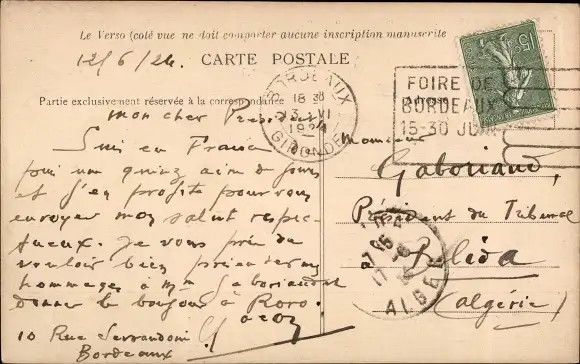 Le Verso (coté vue ne doit comporter aucune inscription manuscrite
12/6/24.
CARTE POSTALE
Partie exclusivement réservée à la correspondance
Adresse
mon cher Président
Suis en France
pour une quinzaine de jours
et j'en profite pour vous
envoyer mon salut respec-
tueux. Je vous prie de
vouloir bien
hommages à Mme Gaboriaud et
donner le bonjour à Roro.
10 Rue Servandoni
Bordeaux
Monsieur
Gaboriaud,
Président du Tribunal
Blida
(Algérie)
BORDEAUX
18 30
13 VI
1924
GIRONDE
FOIRE DE
BORDEAUX
15-30 JUIN
15
ALGER